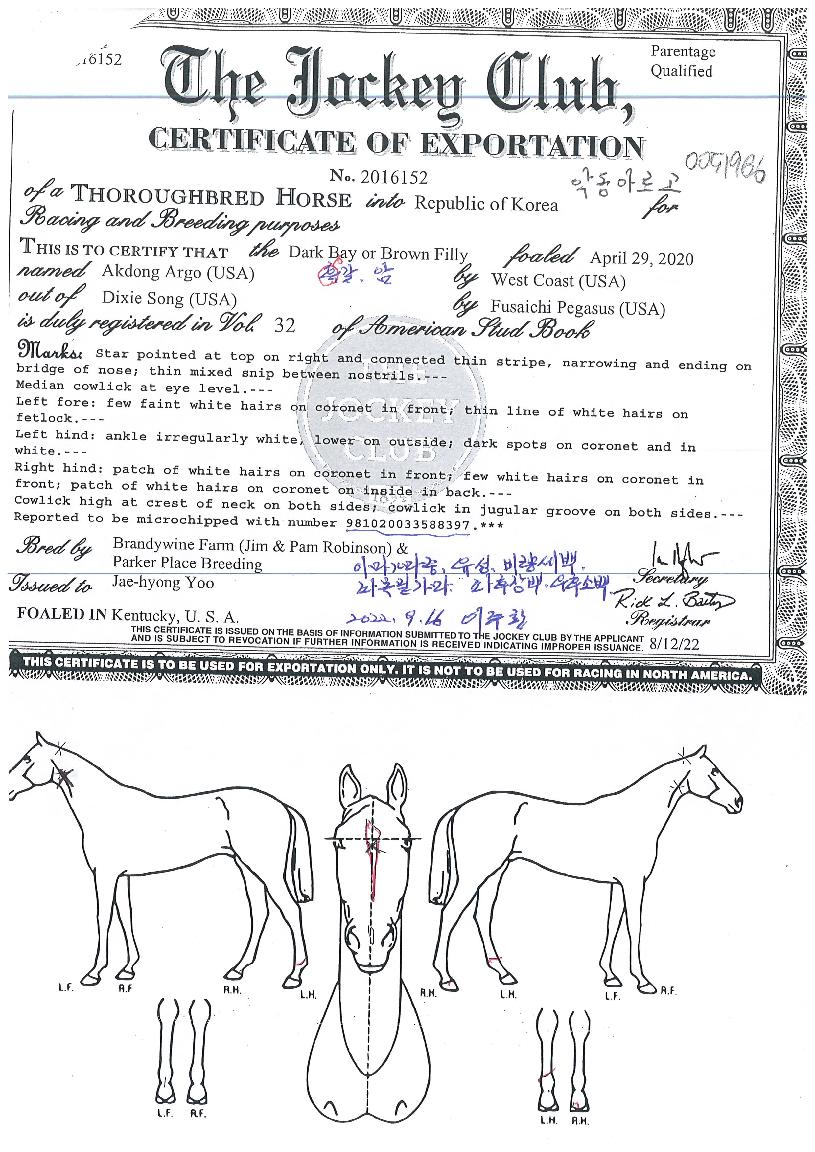 16152
Parentage
Qualified
The Jockey Club,
CERTIFICATE OF EXPORTATION
No. 2016152
악동아르고
0051986
of a THOROUGHBRED HORSE into Republic of Korea for
Racing and Breeding purposes
THIS IS TO CERTIFY THAT the Dark Bay or Brown Filly foaled April 29, 2020
named Akdong Argo (USA) 흑갈. 암 by West Coast (USA)
out of Dixie Song (USA) by Fusaichi Pegasus (USA)
is duly registered in Vol. 32 of American Stud Book
Marks: Star pointed at top on right and connected thin stripe, narrowing and ending on
bridge of nose; thin mixed snip between nostrils.---
Median cowlick at eye level.---
Left fore: few faint white hairs on coronet in front; thin line of white hairs on
fetlock.---
Left hind: ankle irregularly white, lower on outside; dark spots on coronet and in
white.---
Right hind: patch of white hairs on coronet in front; few white hairs on coronet in
front; patch of white hairs on coronet on inside in back.---
Cowlick high at crest of neck on both sides; cowlick in jugular groove on both sides.---
Reported to be microchipped with number 981020033588397.***
THE
JOCKEY
CLUB
Bred by Brandywine Farm (Jim & Pam Robinson) &
Parker Place Breeding
Issued to Jae-hyong Yoo
Secretary
Registrar
FOALED IN Kentucky, U. S. A.
2022. 9. 16
THIS CERTIFICATE IS ISSUED ON THE BASIS OF INFORMATION SUBMITTED TO THE JOCKEY CLUB BY THE APPLICANT
AND IS SUBJECT TO REVOCATION IF FURTHER INFORMATION IS RECEIVED INDICATING IMPROPER ISSUANCE. 8/12/22
THIS CERTIFICATE IS TO BE USED FOR EXPORTATION ONLY. IT IS NOT TO BE USED FOR RACING IN NORTH AMERICA.
L.F. R.F R.H. L.H. R.H. L.H. L.F. R.F.
L.F. R.F. L.H. R.H.